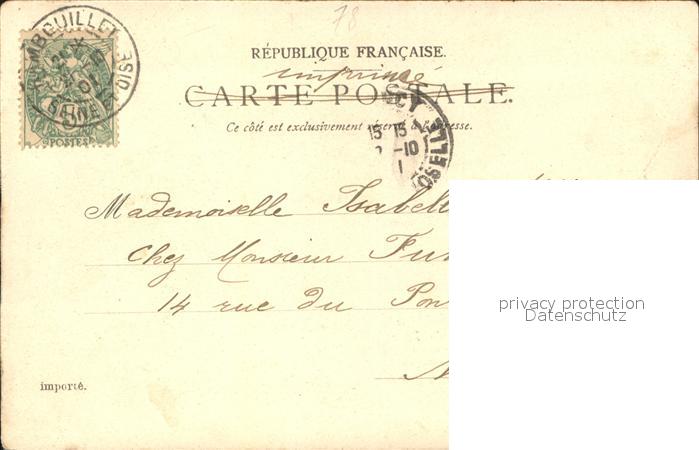 78
RAMBOUILLET
SEINE ET OISE
POSTES
RÉPUBLIQUE FRANÇAISE.
imprimé
CARTE POSTALE.
Ce côté est exclusivement réservé à l'adresse.
CY
15 15
-10
1
OSELLE
Mademoiselle Isabell
Chez Monsieur Fu
14 rue du Pon
N
importé.
privacy protection
Datenschutz